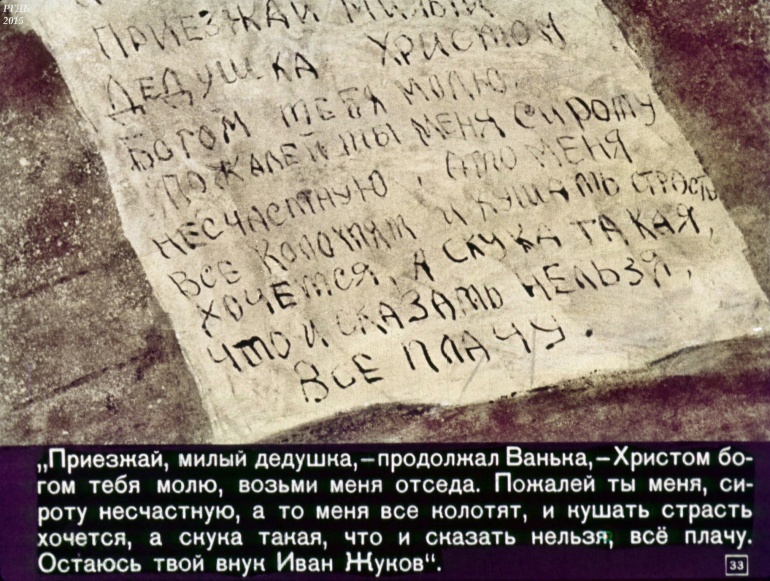 РГДБ
2015
ПРИЕЗЖАЙ МИЛЫЙ
ДЕДУШКА ХРИСТОМ
БОГОМ ТЕБЯ МОЛЮ.
ПОЖАЛЕЙ ТЫ МЕНЯ СИРОТУ
НЕСЧАСТНУЮ, А ТО МЕНЯ
ВСЕ КОЛОТЯТ И КУШАТЬ СТРАСТЬ
ХОЧЕТСЯ, А СКУКА ТАКАЯ,
ЧТО И СКАЗАТЬ НЕЛЬЗЯ,
ВСЕ ПЛАЧУ.
„Приезжай, милый дедушка,—продолжал Ванька,—Христом бо-
гом тебя молю, возьми меня отседа. Пожалей ты меня, си-
роту несчастную, а то меня все колотят, и кушать страсть
хочется, а скука такая, что и сказать нельзя, всё плачу.
Остаюсь твой внук Иван Жуков“.
33